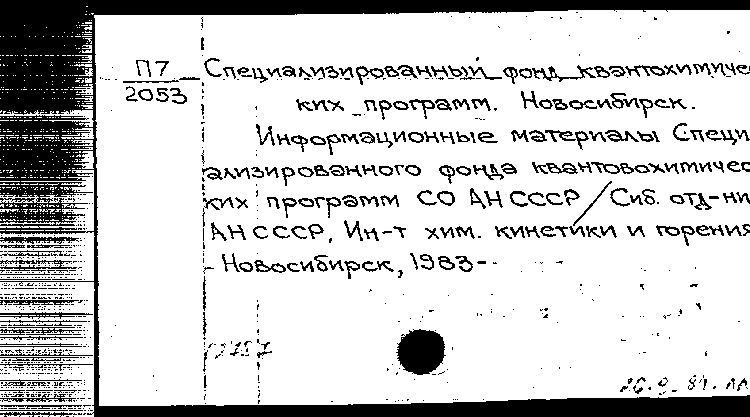 П7
2053
Специализированный фонд квантохимичес
ких программ. Новосибирск.
Информационные материалы Специ
ализированного фонда квантовохимичес
ких программ СО АН СССР / Сиб. отд-ни
АН СССР, Ин-т хим. кинетики и горения
- Новосибирск, 1983-